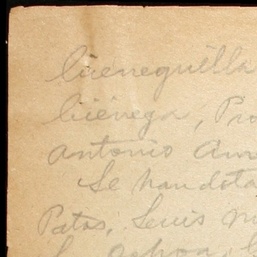 Cieneguilla
Ciénega, Pro
Antonio Am
Se han dota
Patos, Luis M
Ochoa,